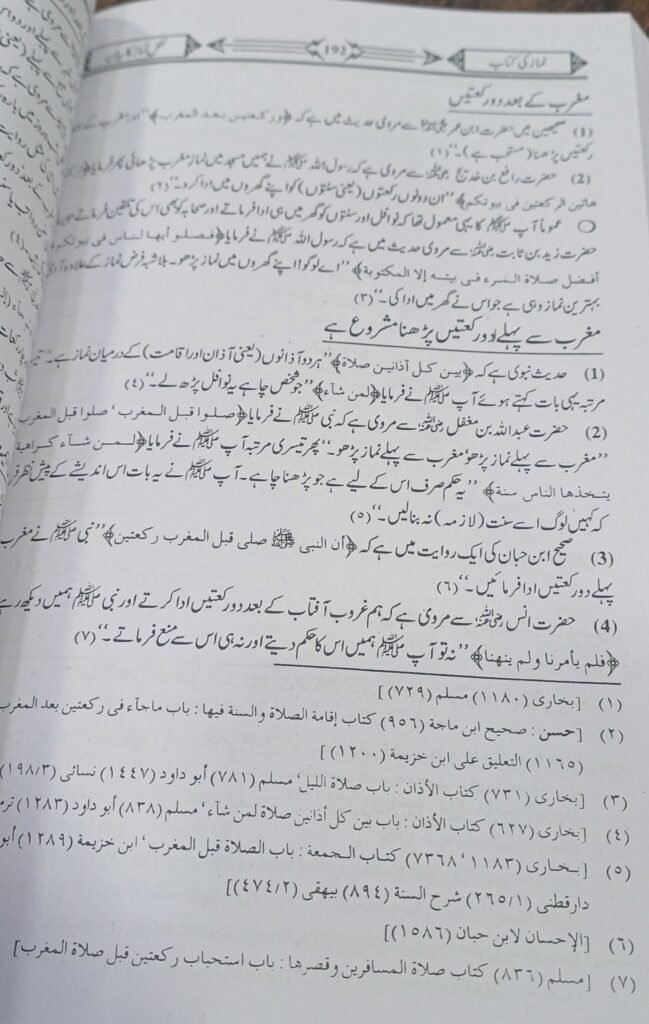 نماز کی کتاب 192 نفل نماز کا بیان
مغرب کے بعد دو رکعتیں
(1) صحیحین میں حضرت ابن عمر رضی اللہ عنہما سے مروی حدیث میں ہے کہ ﴿ورکعتین بعد المغرب﴾ "اور مغرب کے بعد
رکعتیں پڑھنا (مستحب ہے)۔" (۱)
(2) حضرت رافع بن خدیج رضی اللہ عنہ سے مروی ہے کہ رسول اللہ ﷺ نے ہمیں مسجد میں نماز مغرب پڑھائی پھر فرمایا
هاتین الرکعتین فی بیوتکم﴾ "ان دونوں رکعتوں (یعنی سنتوں) کو اپنے گھروں میں ادا کرو۔" (۲)
○ عموماً آپ ﷺ کا یہی معمول تھا کہ نوافل اور سنتوں کو گھر میں ہی ادا فرماتے اور صحابہ کو بھی اس کی تلقین فرماتے
حضرت زید بن ثابت رضی اللہ عنہ سے مروی حدیث میں ہے کہ رسول اللہ ﷺ نے فرمایا ﴿فصلوا أیها الناس فی بیوتکم
أفضل صلاة المرء فی بیته إلا المکتوبة﴾ "اے لوگو! اپنے گھروں میں نماز پڑھو۔ بلاشبہ فرض نماز کے علاوہ آدمی
بہترین نماز وہی ہے جو اس نے گھر میں ادا کی۔" (۳)
مغرب سے پہلے دو رکعتیں پڑھنا مشروع ہے
(1) حدیث نبوی ہے کہ ﴿بین کل أذانین صلاة﴾ "ہر دو آذانوں (یعنی آذان اور اقامت) کے درمیان نماز ہے۔" تیسری
مرتبہ یہی بات کہتے ہوئے آپ ﷺ نے فرمایا ﴿لمن شآء﴾ "جو شخص چاہے یہ نوافل پڑھ لے۔" (٤)
(2) حضرت عبداللہ بن مغفل رضی اللہ عنہ سے مروی ہے کہ نبی ﷺ نے فرمایا ﴿صلوا قبل المغرب ' صلوا قبل المغرب
"مغرب سے پہلے نماز پڑھو' مغرب سے پہلے نماز پڑھو۔" پھر تیسری مرتبہ آپ ﷺ نے فرمایا ﴿لمن شآء کراهیة
یتخذها الناس سنة﴾ "یہ حکم صرف اس کے لیے ہے جو پڑھنا چاہے۔ آپ ﷺ نے یہ بات اس اندیشے کے پیش نظر
کہ کہیں لوگ اسے سنت (لازمہ) نہ بنا لیں۔" (٥)
(3) صحیح ابن حبان کی ایک روایت میں ہے کہ ﴿أن النبی ﷺ صلی قبل المغرب رکعتین﴾ "نبی ﷺ نے مغرب
پہلے دو رکعتیں ادا فرمائیں۔" (٦)
(4) حضرت انس رضی اللہ عنہ سے مروی ہے کہ ہم غروب آفتاب کے بعد دو رکعتیں ادا کرتے اور نبی ﷺ ہمیں دیکھ رہے
﴿فلم یأمرنا ولم ینهنا﴾ "نہ تو آپ ﷺ ہمیں اس کا حکم دیتے اور نہ ہی اس سے منع فرماتے۔" (۷)
(۱) [بخاری (۱۱۸۰) مسلم (۷۲۹)]
(۲) [حسن : صحیح ابن ماجة (۹٥٦) کتاب إقامة الصلاة والسنة فیها : باب ماجآء فی رکعتین بعد المغرب
(۱۱٦٥) التعلیق علی ابن خزیمة (۱۲۰۰)]
(۳) [بخاری (۷۳۱) کتاب الأذان : باب صلاة اللیل ' مسلم (۷۸۱) أبو داود (۱٤٤۷) نسائی (۱۹۸/۳)
(٤) [بخاری (٦۲۷) کتاب الأذان : باب بین کل أذانین صلاة لمن شآء ' مسلم (۸۳۸) أبو داود (۱۲۸۳)
(٥) [بخاری (۱۱۸۳ ' ۷۳٦۸) کتاب الجمعة : باب الصلاة قبل المغرب ' ابن خزیمة (۱۲۸۹) أبو
دارقطنی (۲٦٥/۱) شرح السنة (۸۹٤) بیهقی (٤۷٤/۲)]
(٦) [الإحسان لابن حبان (۱٥۸٦)]
(۷) [مسلم (۸۳٦) کتاب صلاة المسافرین وقصرها : باب استحباب رکعتین قبل صلاة المغرب]